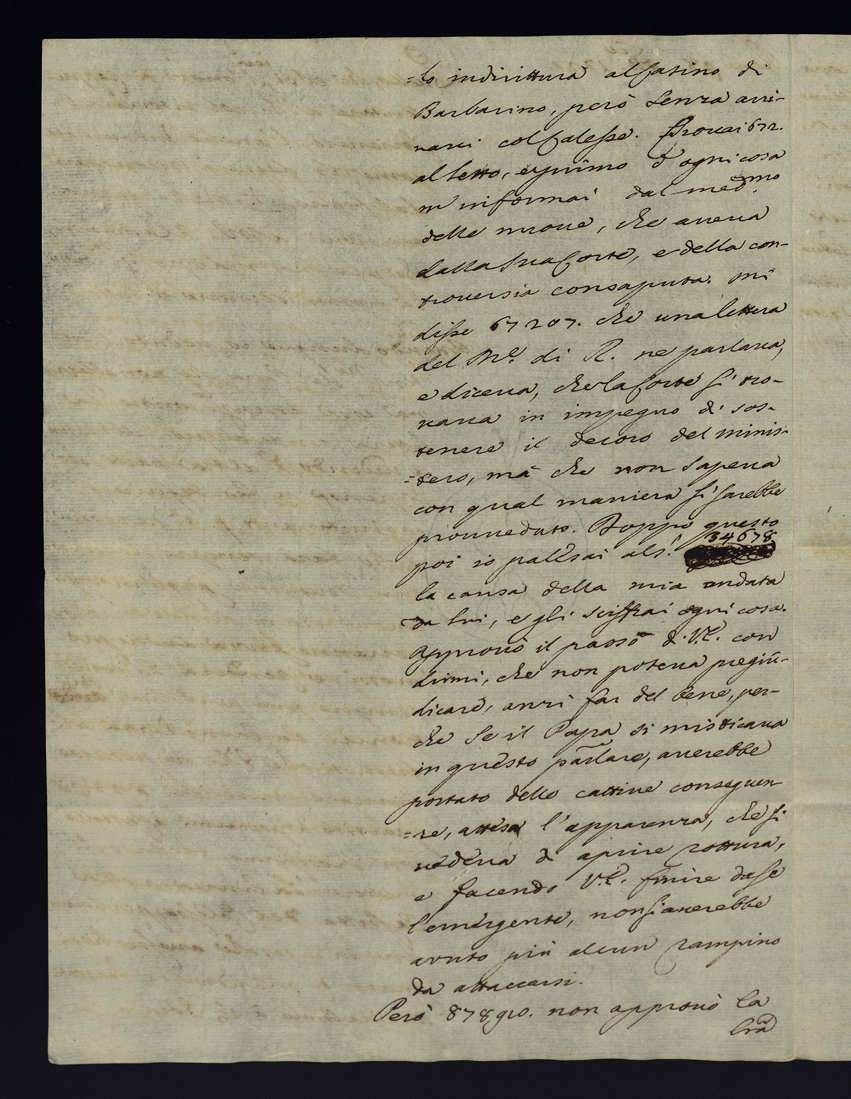 =lo indirittura al Casino di
Barbarino, però senza arri-
varci col Calesse. Trovai 672.
al letto, e primo d'ogni cosa
m'informai dal med.mo
delle nuove, che aveva
dalla sua Corte, e della con-
troversia consaputa. Mi
disse 67207. che una lettera
del M.e di R. ne parlava,
e diceva, che la Corte si tro-
vava in impegno di sos-
tenere il decoro del minis-
=tero, mà che non sapeva
con qual maniera si sarebbe
provveduto. Doppo questo
poi io palesai al s.r 34678
la causa della mia andata
da lui, e gli sciffrai ogni cosa.
Approvò il passo di V.E. con
dirmi, che non poteva pregiu-
dicare, anzi far del bene, per-
che se il Papa si misticava
in questo parlare, averebbe
portato delle cattive conseguen-
=ze, attesa l'apparenza, che si
vedeva di aprire rottura,
e facendo V.E. finire da se
l'emergente, non si averebbe
avuto più alcun rampino
da attaccarsi.
Però 878910. non approvò la